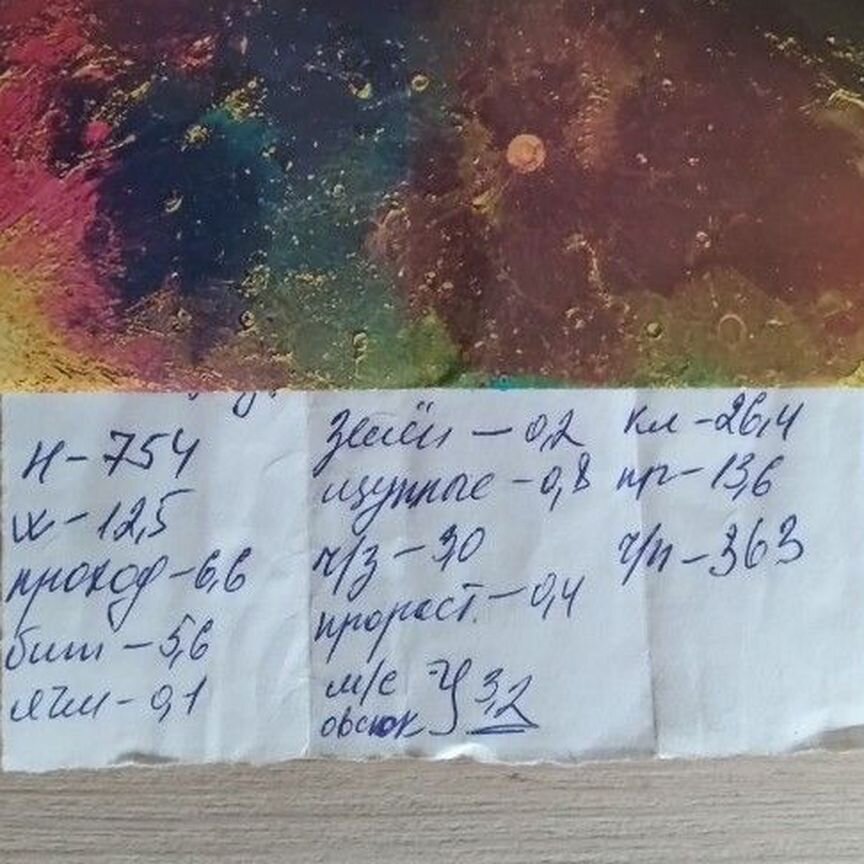 Н-754
W-12,5
проход-6,6
бит-5,6
ячм-0,1
зелён-0,2
щуплые-0,8
ч/з-3,0
пророст.-0,4
м/с
овсюк } 3,2
кл-26,4
пр-13,6
ч/п-363